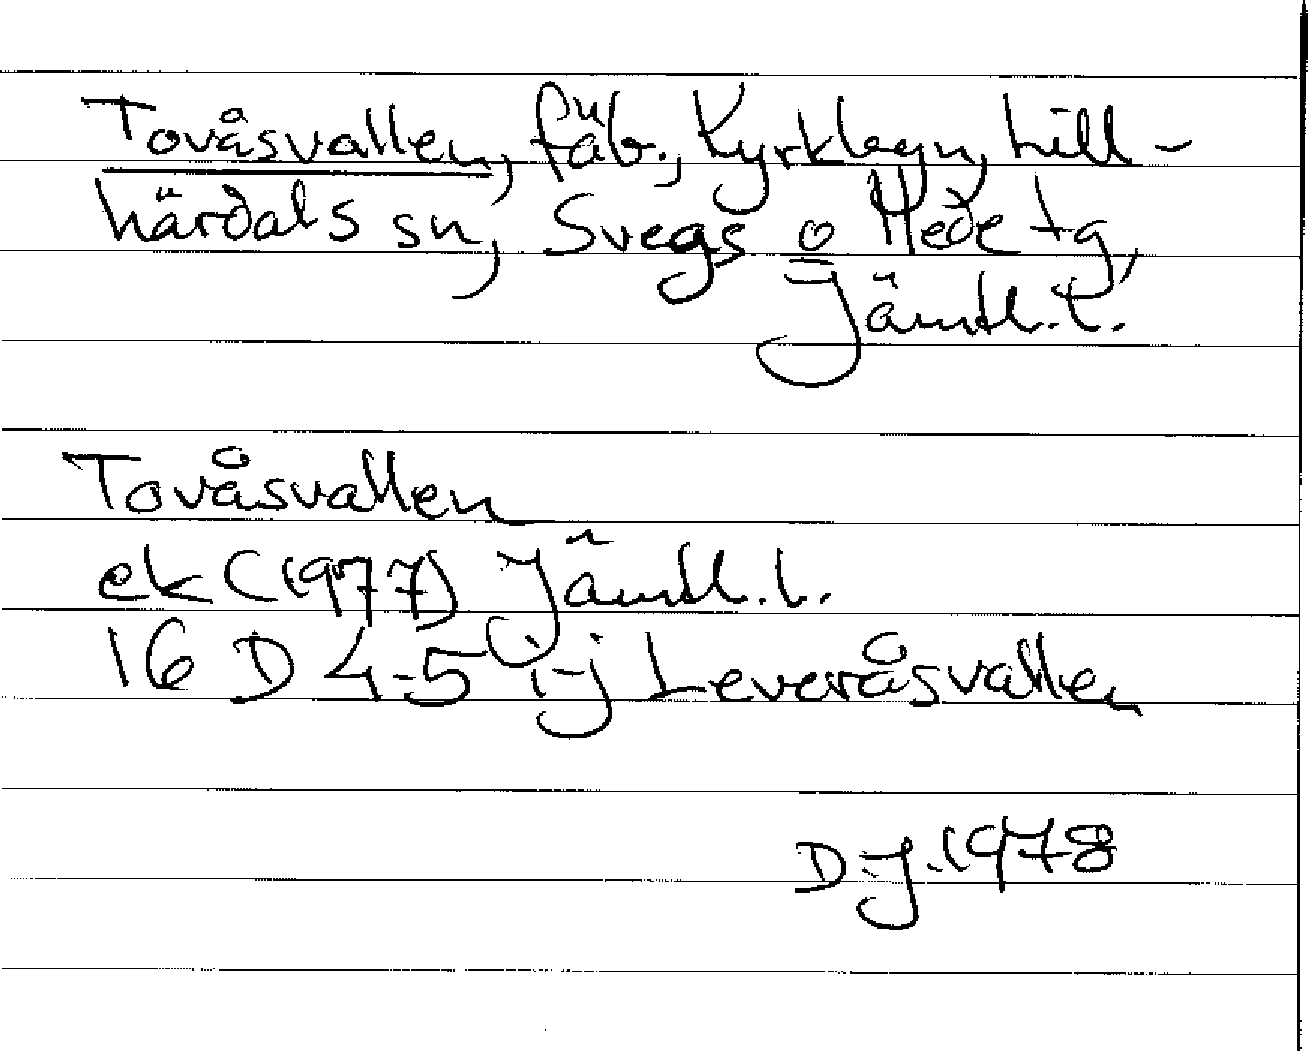 Tovåsvallen, fäb., Kyrklägn, Lill-
härdals sn, Svegs o Hede tg,
Jämtl. l.
Tovåsvallen
ek (1977) Jämtl. l.
16 D 4-5 i-j Leveråsvallen
D-J. 1978